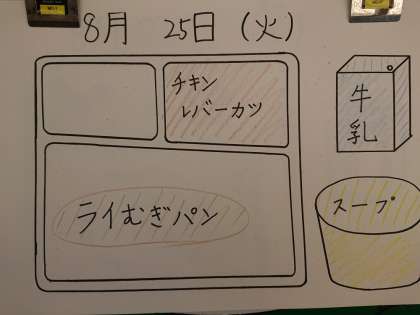 8月 25日(火)
チキン
レバーカツ
牛
乳
ライむぎパン
スープ